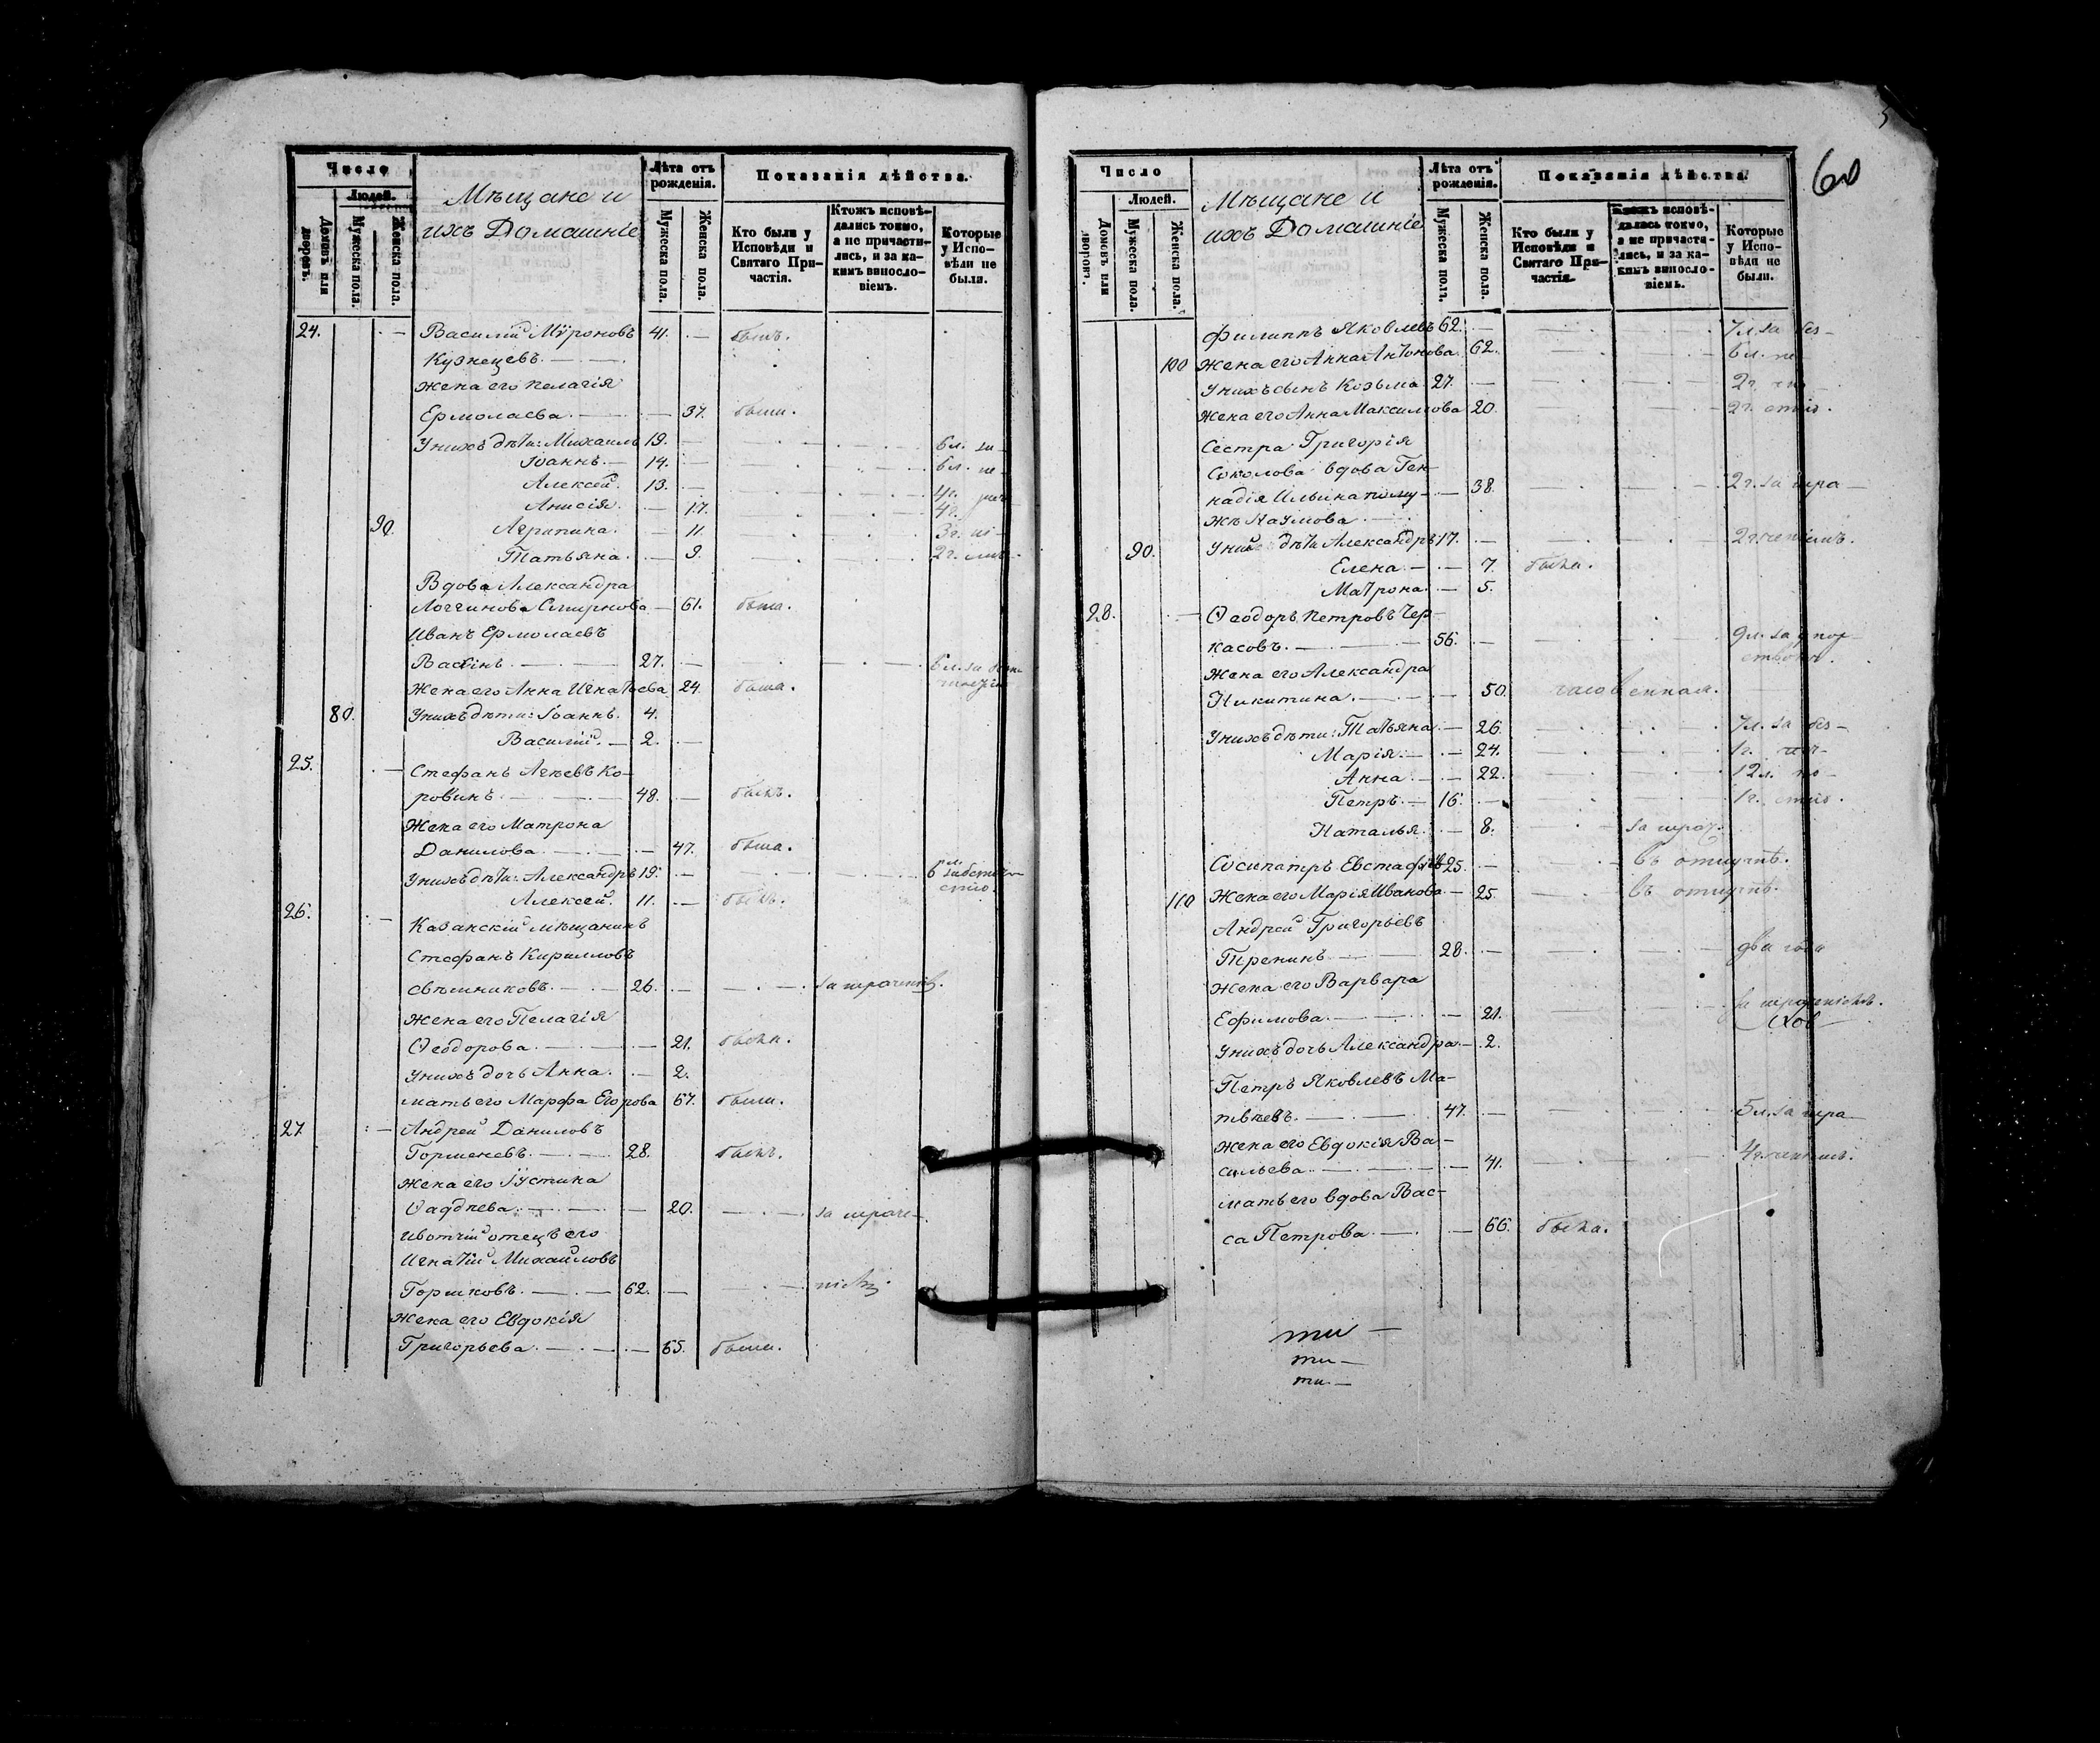 Число
Людей.
Домовъ или дворовъ.
Мужеска пола.
Женска пола.
Мѣщане и
ихъ Домашніе
Лѣта отъ рожденія.
Мужеска пола.
Женска пола.
Показанія дѣйства.
Кто были у Исповѣди и Святаго Причастія.
Ктожъ исповѣдались токмо, а не причастились, и за какимъ винословіемъ.
Которые у Исповѣди не были.
24. Василій Мѵроновъ 41. былъ.
Кузнецевъ.
Жена его Пелагія
Ермолаева. 37. были.
У нихъ дѣти: Михаилъ 19. 6 л. за
Іоаннъ. 14. 6 л. не
Алексѣй. 13. 4 г.
Анисія. 17. 4 г.
90. Агрипина. 11. 3 г.
Татьяна. 9. 2 г.
Вдова Александра
Логгинова Смирнова 61. была.
Иванъ Ермолаевъ
Васинъ. 27. 6 л. за
Жена его Анна Игнатьева 24. была.
80. У нихъ дѣти: Іоаннъ. 4.
Василій. 2.
25. Стефанъ Агѣевъ Ко-
ровинъ. 48. былъ.
Жена его Матрона
Данилова. 47. была.
У нихъ дѣти: Александръ 19. 6 л.
Алексѣй. 11. былъ.
26. Казанскій мѣщанинъ
Стефанъ Кирилловъ
Свѣшниковъ. 26.
Жена его Пелагія
Ѳеодорова. 21. была.
У нихъ дочь Анна. 2.
Мать его Марфа Егорова 67. были.
27. Андрей Даниловъ
Горшеневъ. 28. былъ.
Жена его Іустина
Ѳаддѣева. 20.
И вотчій отецъ его
Игнатій Михайловъ
Горшковъ. 62.
Жена его Евдокія
Григорьева. 65. были.
60
Число
Людей.
Домовъ или дворовъ.
Мужеска пола.
Женска пола.
Мѣщане и
ихъ Домашніе
Лѣта отъ рожденія.
Мужеска пола.
Женска пола.
Показанія дѣйства.
Кто были у Исповѣди и Святаго Причастія.
Ктожъ исповѣдались токмо, а не причастились, и за какимъ винословіемъ.
Которые у Исповѣди не были.
Филиппъ Яковлевъ 62. 7 л. за
100 Жена его Анна Антонова. 62. 6 л.
У нихъ сынъ Козьма 27. 2 г.
Жена его Анна Максимова 20. 2 г.
Сестра Григорія
Соколова вдова Ген-
надія Ильина по му- 38. 2 г. за
жѣ Наумова
90. У ней дѣти Александръ 17. 2 г.
Елена 7. были.
Матрона. 5.
28. Ѳеодоръ Петровъ Чер-
касовъ. 56. 9 л. за
Жена его Александра
Никитина. 50.
У нихъ дѣти: Татьяна 26. 7 л. за
Марія. 24. 1 г.
Анна. 22. 12 л.
Петръ. 16. 1 г.
Наталья. 8.
Сосипатръ Евстафіевъ 25. въ отлучкѣ.
110 Жена его Марія Иванова 25. въ отлучкѣ.
Андрей Григорьевъ
Тренинъ 28. два года
Жена его Варвара
Ефимова. 21.
У нихъ дочь Александра 2.
Петръ Яковлевъ Ма-
твѣевъ. 47. 5 л. за
Жена его Евдокія Ва-
сильева. 41. 4 г.
Мать его вдова Вас-
са Петрова 66. была.
ти
ти
ти